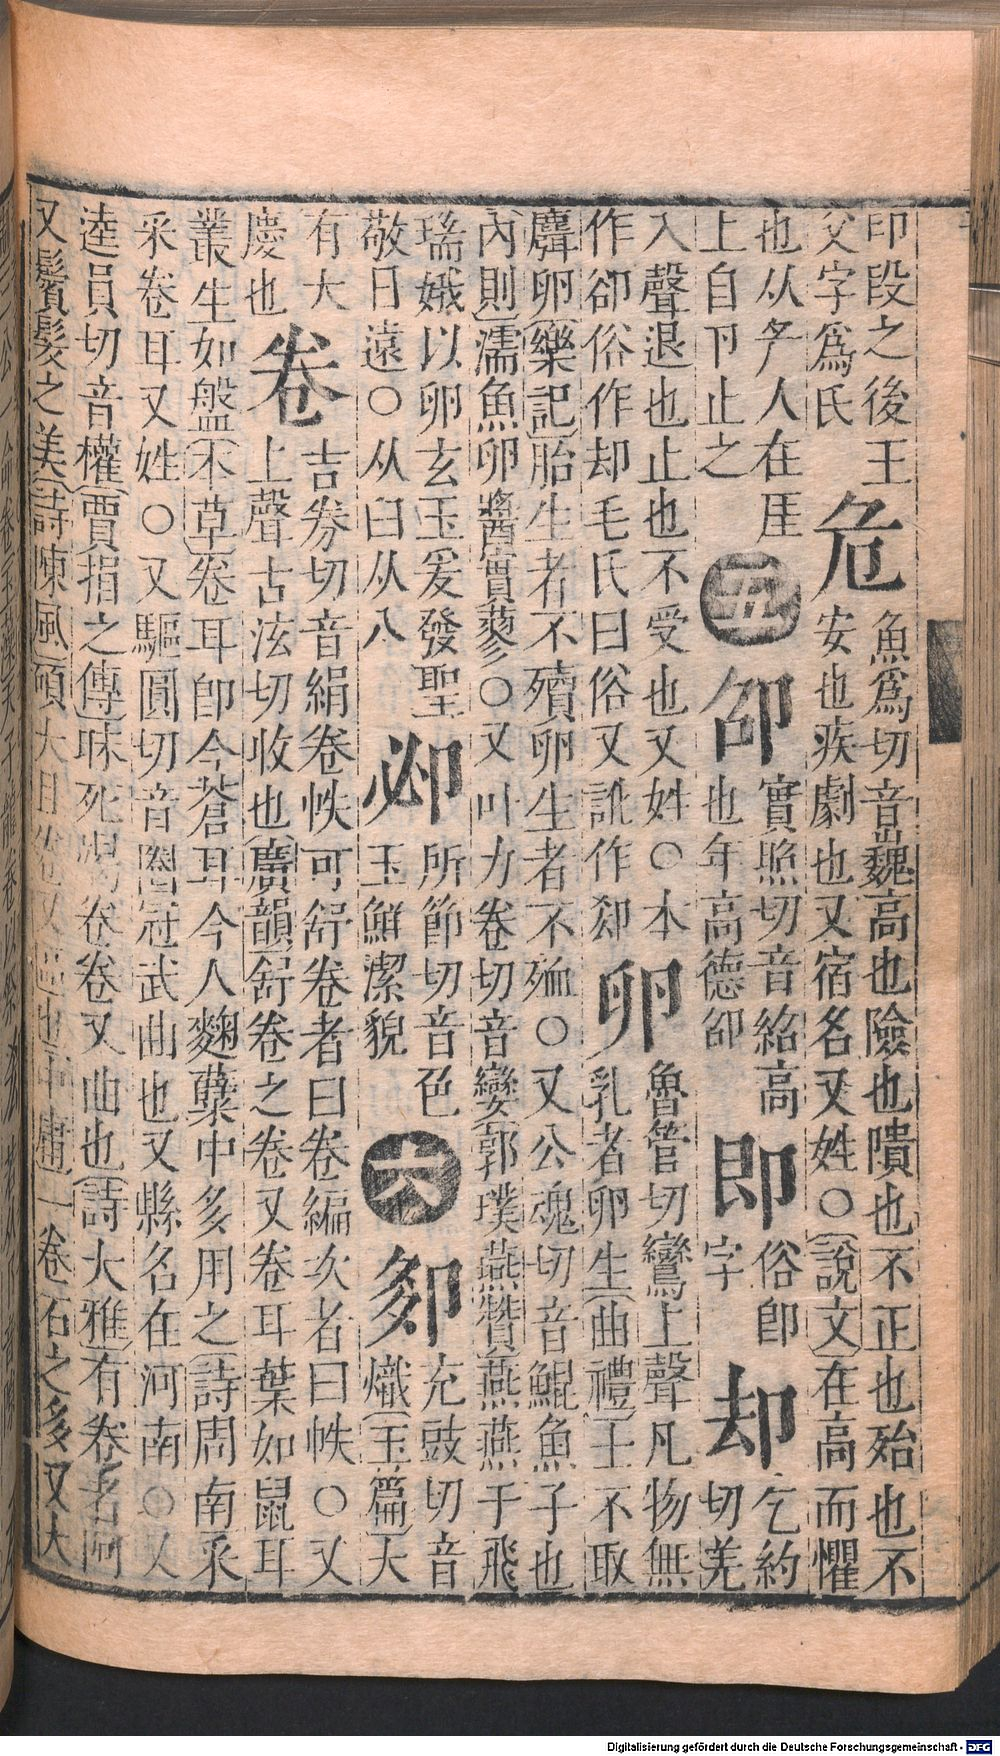 印段之後王
父字爲氏
危
魚爲切音嵬巍高也險也隤也不正也殆也不
安也疾劇也又宿名又姓○說文在高而懼
也从厃人在厓
上自卪止之
五
卲
實照切音紹高
也年高德卲
卽
俗卽
字
却
乞約
切羌
入聲退也止也不受也又姓○本
作卻俗作却毛氏曰俗又訛作郄
卵
魯管切鸞上聲凡物無
乳者卵生曲禮士不取
麛卵樂記胎生者不殰卵生者不殈○又公魂切音鯤魚子也
內則濡魚卵醬實蓼○又叶力卷切音孌郭璞燕贊燕燕于飛
瑞娥以卵玄玉爰發聖
敬日遠○从臼从八
所節切音色
玉鮮潔貌
六
卶
充豉切音
熾玉篇大
有大
慶也
卷
吉券切音絹卷帙可舒卷者曰卷編次者曰帙○又
上聲古泫切收也廣韻舒卷之卷又卷耳葉如鼠耳
叢生如盤本草卷耳卽今蒼耳今人麴櫱中多用之詩周南采
采卷耳又姓○又驅圓切音圈冠武曲也又縣名在河南○又
逵員切音權賈捐之傳昧死竭卷卷又曲也詩大雅有卷者阿
又鬢髮之美詩陳風碩大且卷又區也中庸一卷石之多又大
Digitalisierung gefördert durch die Deutsche Forschungsgemeinschaft - DFG